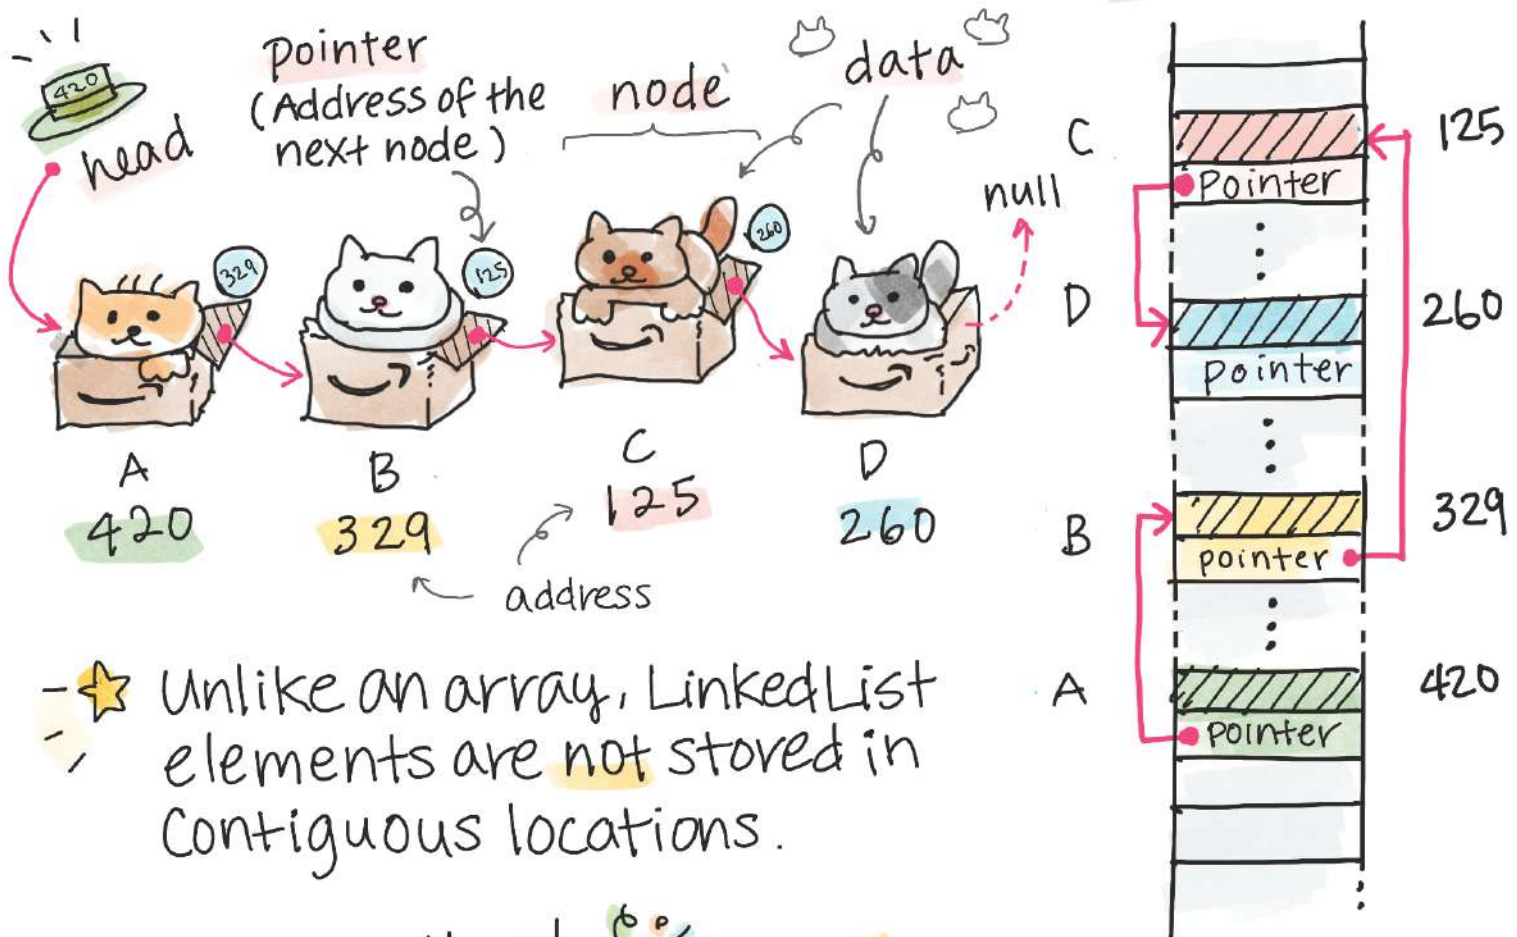 420
head
pointer
(Address of the
next node)
node
data
null
329
125
260
A
420
B
329
C
125
D
260
address
Unlike an array, LinkedList
elements are not stored in
Contiguous locations.
C
125
Pointer
D
260
pointer
B
329
pointer
A
420
pointer